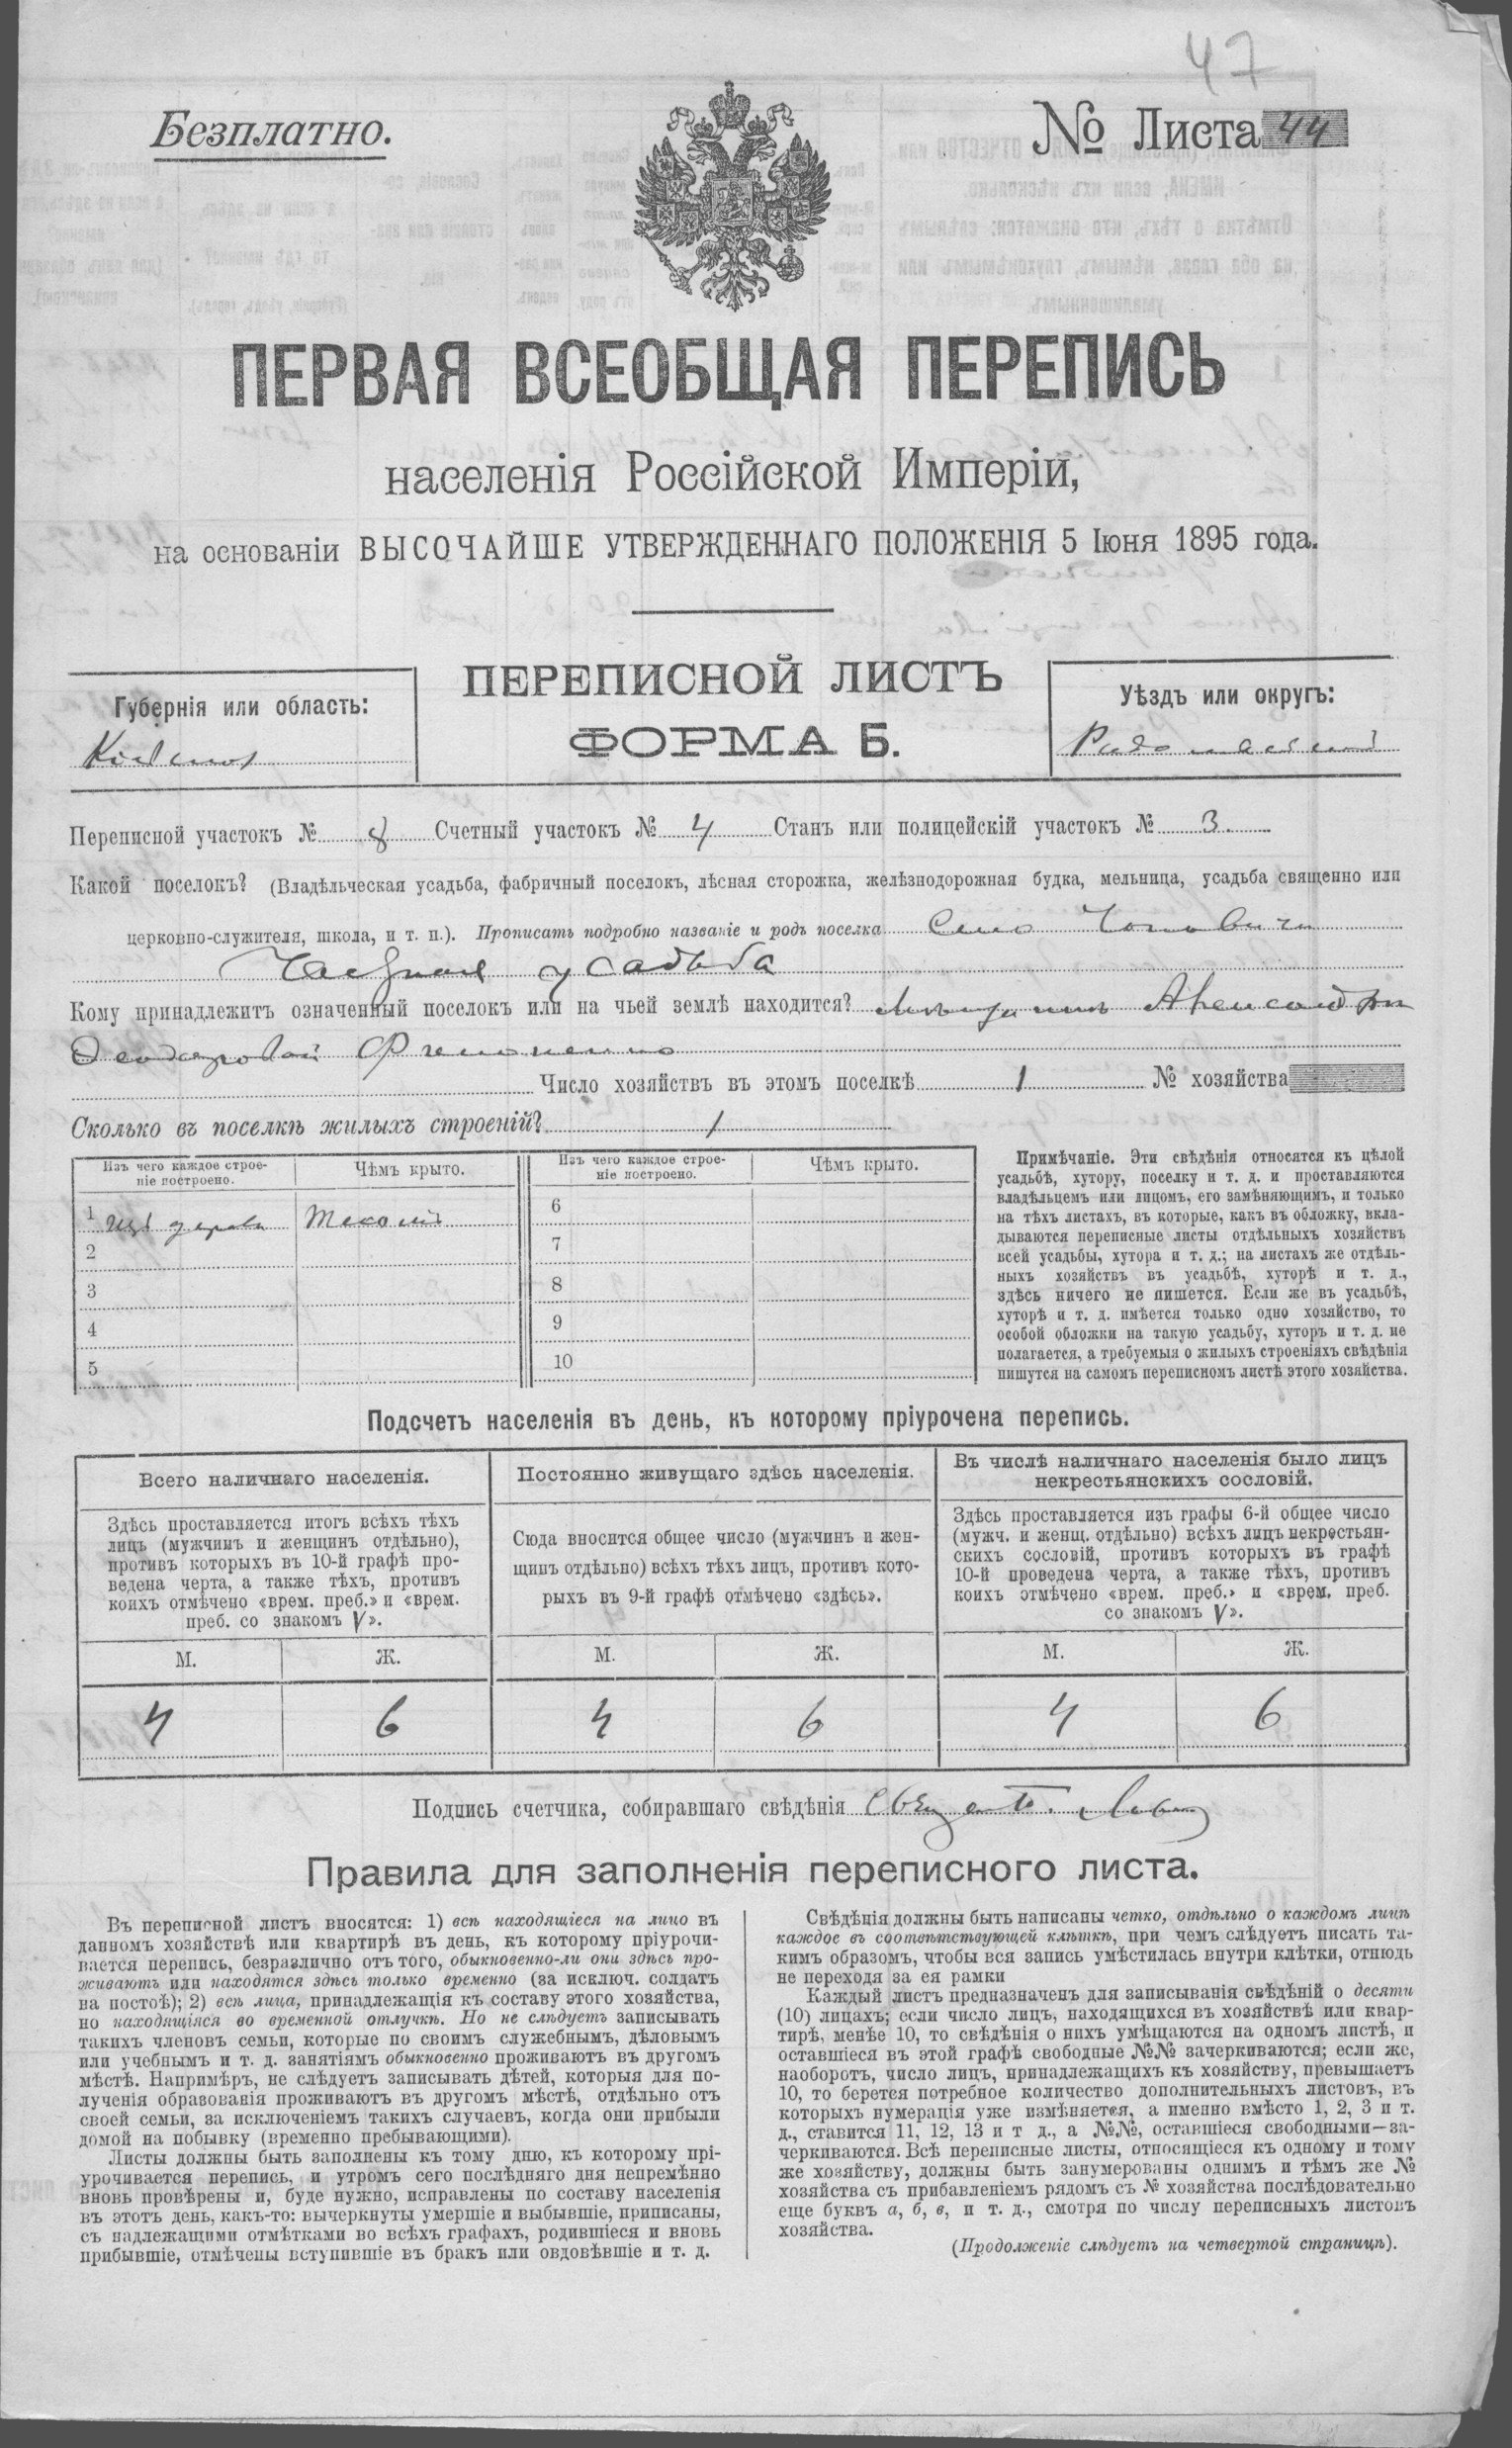 47
Безплатно.
№ Листа 44
ПЕРВАЯ ВСЕОБЩАЯ ПЕРЕПИСЬ
населенія Россійской Имперіи,
на основаніи ВЫСОЧАЙШЕ УТВЕРЖДЕННАГО ПОЛОЖЕНІЯ 5 Іюня 1895 года.
ПЕРЕПИСНОЙ ЛИСТЪ
ФОРМА Б.
Губернія или область:
Кіевская
Уѣздъ или округъ:
Радомысльскій
Переписной участокъ № 8 Счетный участокъ № 4 Станъ или полицейскій участокъ № 3.
Какой поселокъ? (Владѣльческая усадьба, фабричный поселокъ, лѣсная сторожка, желѣзнодорожная будка, мельница, усадьба священно или
церковно-служителя, школа, и т. п.). Прописать подробно названіе и родъ поселка Село
Частная усадьба
Кому принадлежитъ означенный поселокъ или на чьей землѣ находится?
Число хозяйствъ въ этомъ поселкѣ 1 № хозяйства
Сколько въ поселкѣ жилыхъ строеній? 1
Изъ чего каждое строе-
ніе построено.
Чѣмъ крыто.
Изъ чего каждое строе-
ніе построено.
Чѣмъ крыто.
1 изъ дерева
6
2
7
3
8
4
9
5
10
Примѣчаніе. Эти свѣдѣнія относятся къ цѣлой
усадьбѣ, хутору, поселку и т. д. и проставляются
владѣльцемъ или лицомъ, его замѣняющимъ, и только
на тѣхъ листахъ, въ которые, какъ въ обложку, вкла-
дываются переписные листы отдѣльныхъ хозяйствъ
всей усадьбы, хутора и т. д.; на листахъ же отдѣль-
ныхъ хозяйствъ въ усадьбѣ, хуторѣ и т. д.,
здѣсь ничего не пишется. Если же въ усадьбѣ,
хуторѣ и т. д. имѣется только одно хозяйство, то
особой обложки на такую усадьбу, хуторъ и т. д. не
полагается, а требуемыя о жилыхъ строеніяхъ свѣдѣнія
пишутся на самомъ переписномъ листѣ этого хозяйства.
Подсчетъ населенія въ день, къ которому пріурочена перепись.
Всего наличнаго населенія.
Здѣсь проставляется итогъ всѣхъ тѣхъ
лицъ (мужчинъ и женщинъ отдѣльно),
противъ которыхъ въ 10-й графѣ про-
ведена черта, а также тѣхъ, противъ
коихъ отмѣчено «врем. преб.» и «врем.
преб. со знакомъ V».
М. Ж.
4 6
Постоянно живущаго здѣсь населенія.
Сюда вносится общее число (мужчинъ и жен-
щинъ отдѣльно) всѣхъ тѣхъ лицъ, противъ кото-
рыхъ въ 9-й графѣ отмѣчено «здѣсь».
М. Ж.
4 6
Въ числѣ наличнаго населенія было лицъ
некрестьянскихъ сословій.
Здѣсь проставляется изъ графы 6-й общее число
(мужч. и женщ. отдѣльно) всѣхъ лицъ некрестьян-
скихъ сословій, противъ которыхъ въ графѣ
10-й проведена черта, а также тѣхъ, противъ
коихъ отмѣчено «врем. преб.» и «врем. преб.
со знакомъ V».
М. Ж.
4 6
Подпись счетчика, собиравшаго свѣдѣнія
Правила для заполненія переписного листа.
Въ переписной листъ вносятся: 1) всѣ находящіеся на лицо въ
данномъ хозяйствѣ или квартирѣ въ день, къ которому пріурочи-
вается перепись, безразлично отъ того, обыкновенно-ли они здѣсь про-
живаютъ или находятся здѣсь только временно (за исключ. солдатъ
на постоѣ); 2) всѣ лица, принадлежащія къ составу этого хозяйства,
но находящіяся во временной отлучкѣ. Но не слѣдуетъ записывать
такихъ членовъ семьи, которые по своимъ служебнымъ, дѣловымъ
или учебнымъ и т. д. занятіямъ обыкновенно проживаютъ въ другомъ
мѣстѣ. Напримѣръ, не слѣдуетъ записывать дѣтей, которыя для по-
лученія образованія проживаютъ въ другомъ мѣстѣ, отдѣльно отъ
своей семьи, за исключеніемъ такихъ случаевъ, когда они прибыли
домой на побывку (временно пребывающими).
Листы должны быть заполнены къ тому дню, къ которому прі-
урочивается перепись, и утромъ сего послѣдняго дня непремѣнно
вновь провѣрены и, буде нужно, исправлены по составу населенія
въ этотъ день, какъ-то: вычеркнуты умершіе и выбывшіе, приписаны,
съ надлежащими отмѣтками во всѣхъ графахъ, родившіеся и вновь
прибывшіе, отмѣчены вступившіе въ бракъ или овдовѣвшіе и т. д.
Свѣдѣнія должны быть написаны четко, отдѣльно о каждомъ лицѣ
каждое въ соотвѣтствующей клѣткѣ, при чемъ слѣдуетъ писать та-
кимъ образомъ, чтобы вся запись умѣстилась внутри клѣтки, отнюдь
не переходя за ея рамки
Каждый листъ предназначенъ для записыванія свѣдѣній о десяти
(10) лицахъ; если число лицъ, находящихся въ хозяйствѣ или квар-
тирѣ, менѣе 10, то свѣдѣнія о нихъ умѣщаются на одномъ листѣ, и
оставшіеся въ этой графѣ свободные №№ зачеркиваются; если же,
наоборотъ, число лицъ, принадлежащихъ къ хозяйству, превышаетъ
10, то берется потребное количество дополнительныхъ листовъ, въ
которыхъ нумерація уже измѣняется, а именно вмѣсто 1, 2, 3 и т.
д., ставится 11, 12, 13 и т д., а №№, оставшіеся свободными—за-
черкиваются. Всѣ переписные листы, относящіеся къ одному и тому
же хозяйству, должны быть занумерованы однимъ и тѣмъ же №
хозяйства съ прибавленіемъ рядомъ съ № хозяйства послѣдовательно
еще буквъ а, б, в, и т. д., смотря по числу переписныхъ листовъ
хозяйства.
(Продолженіе слѣдуетъ на четвертой страницѣ).